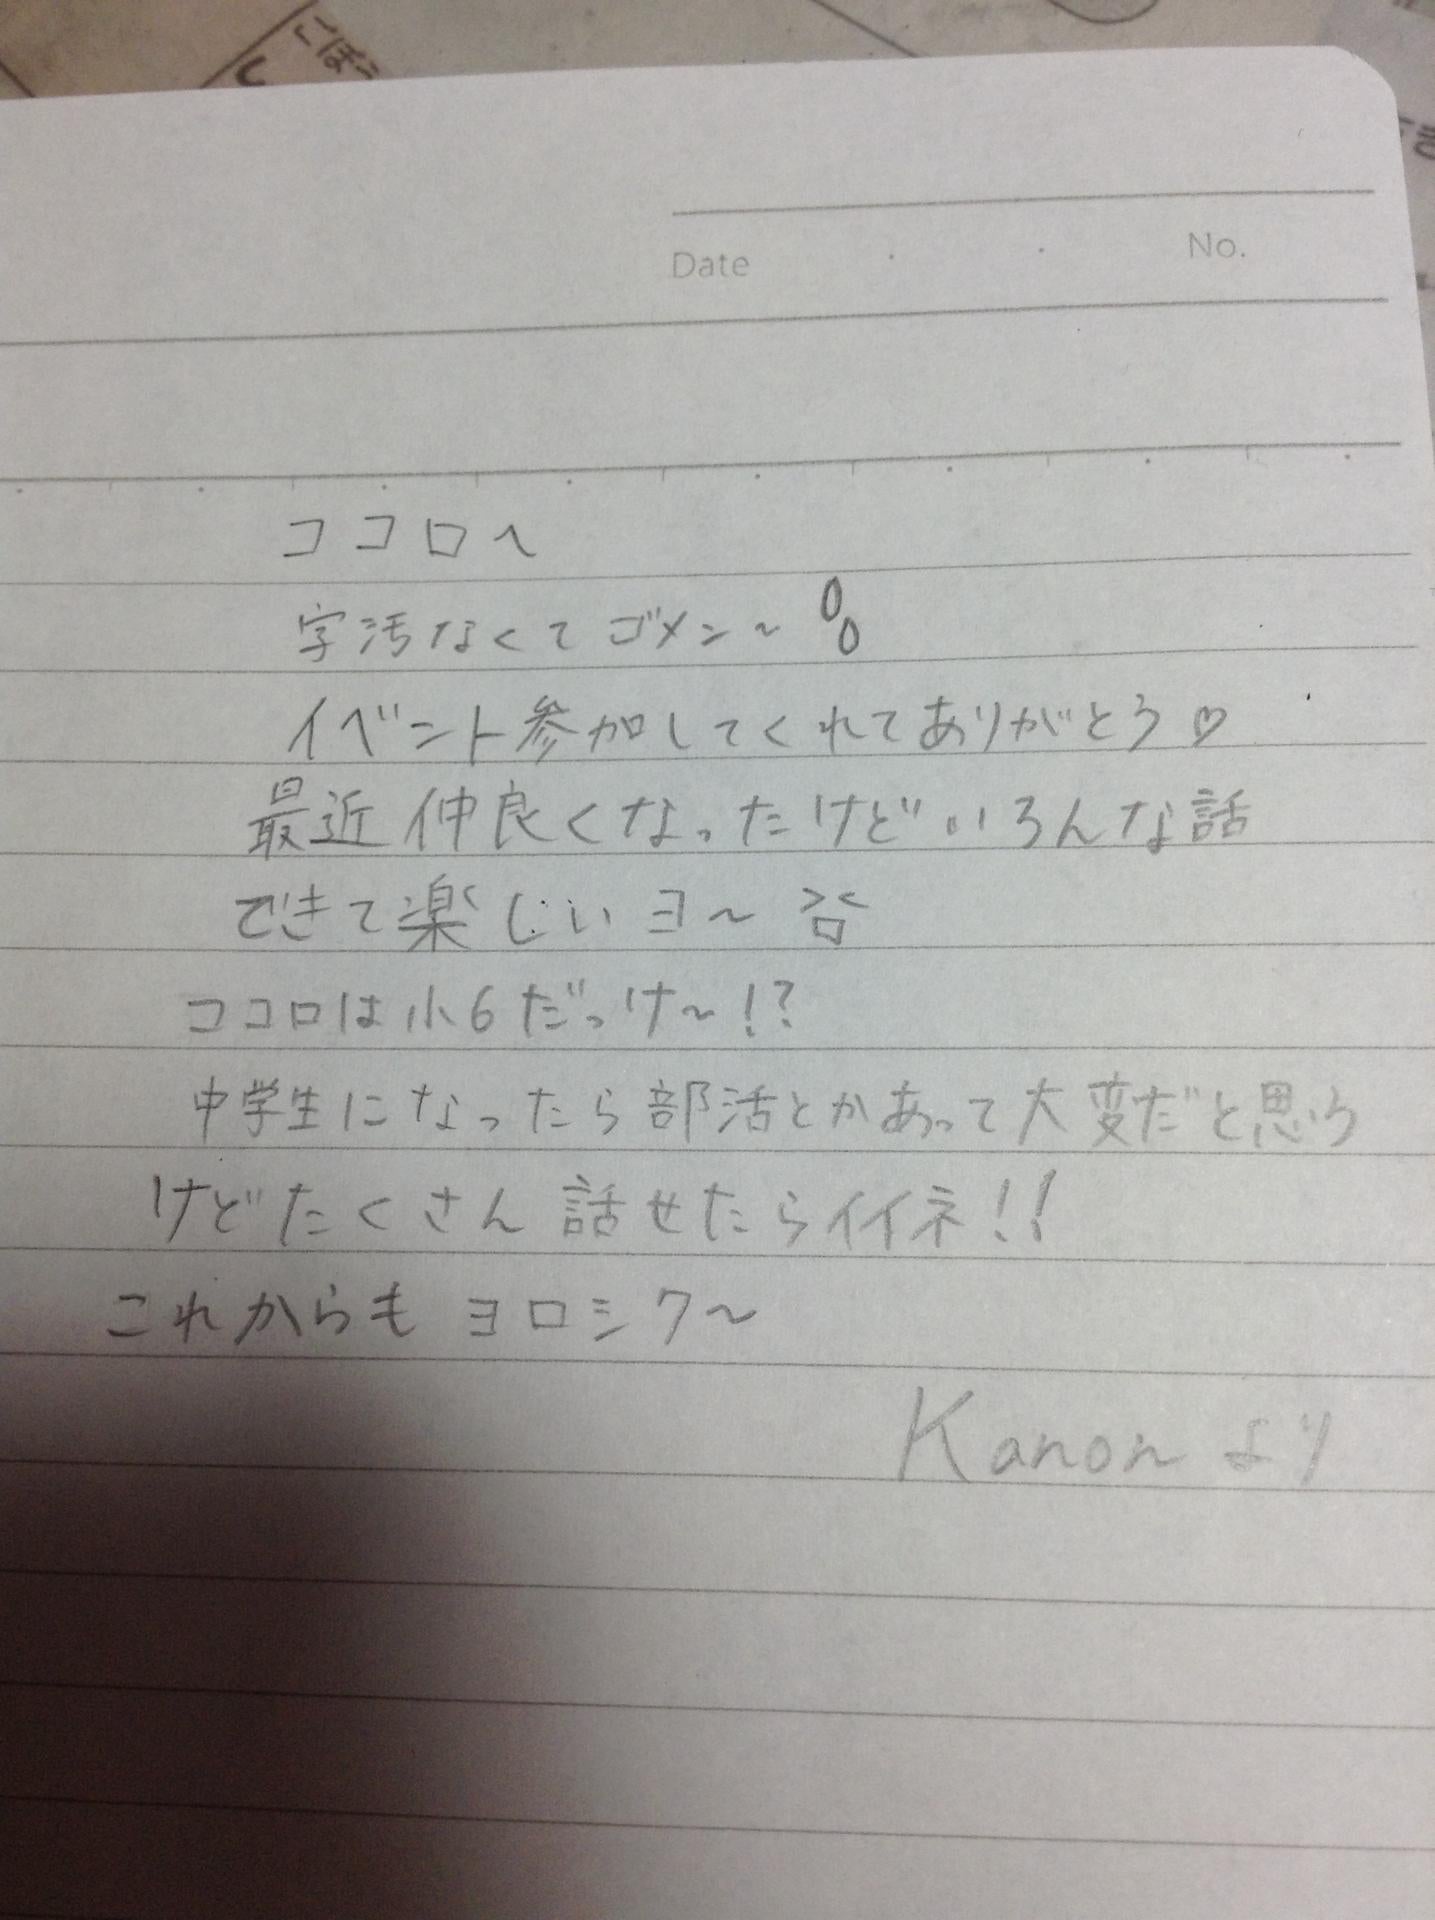 ごぼう
し
Date . . No.
ココロへ
字汚なくてゴメン~
イベント参加してくれてありがとう♡
最近仲良くなったけどいろんな話
できて楽しいヨ~
ココロは小6だっけ~!?
中学生になったら部活とかあって大変だと思う
けどたくさん話せたらイイネ!!
これからもヨロシク~
Kanonより